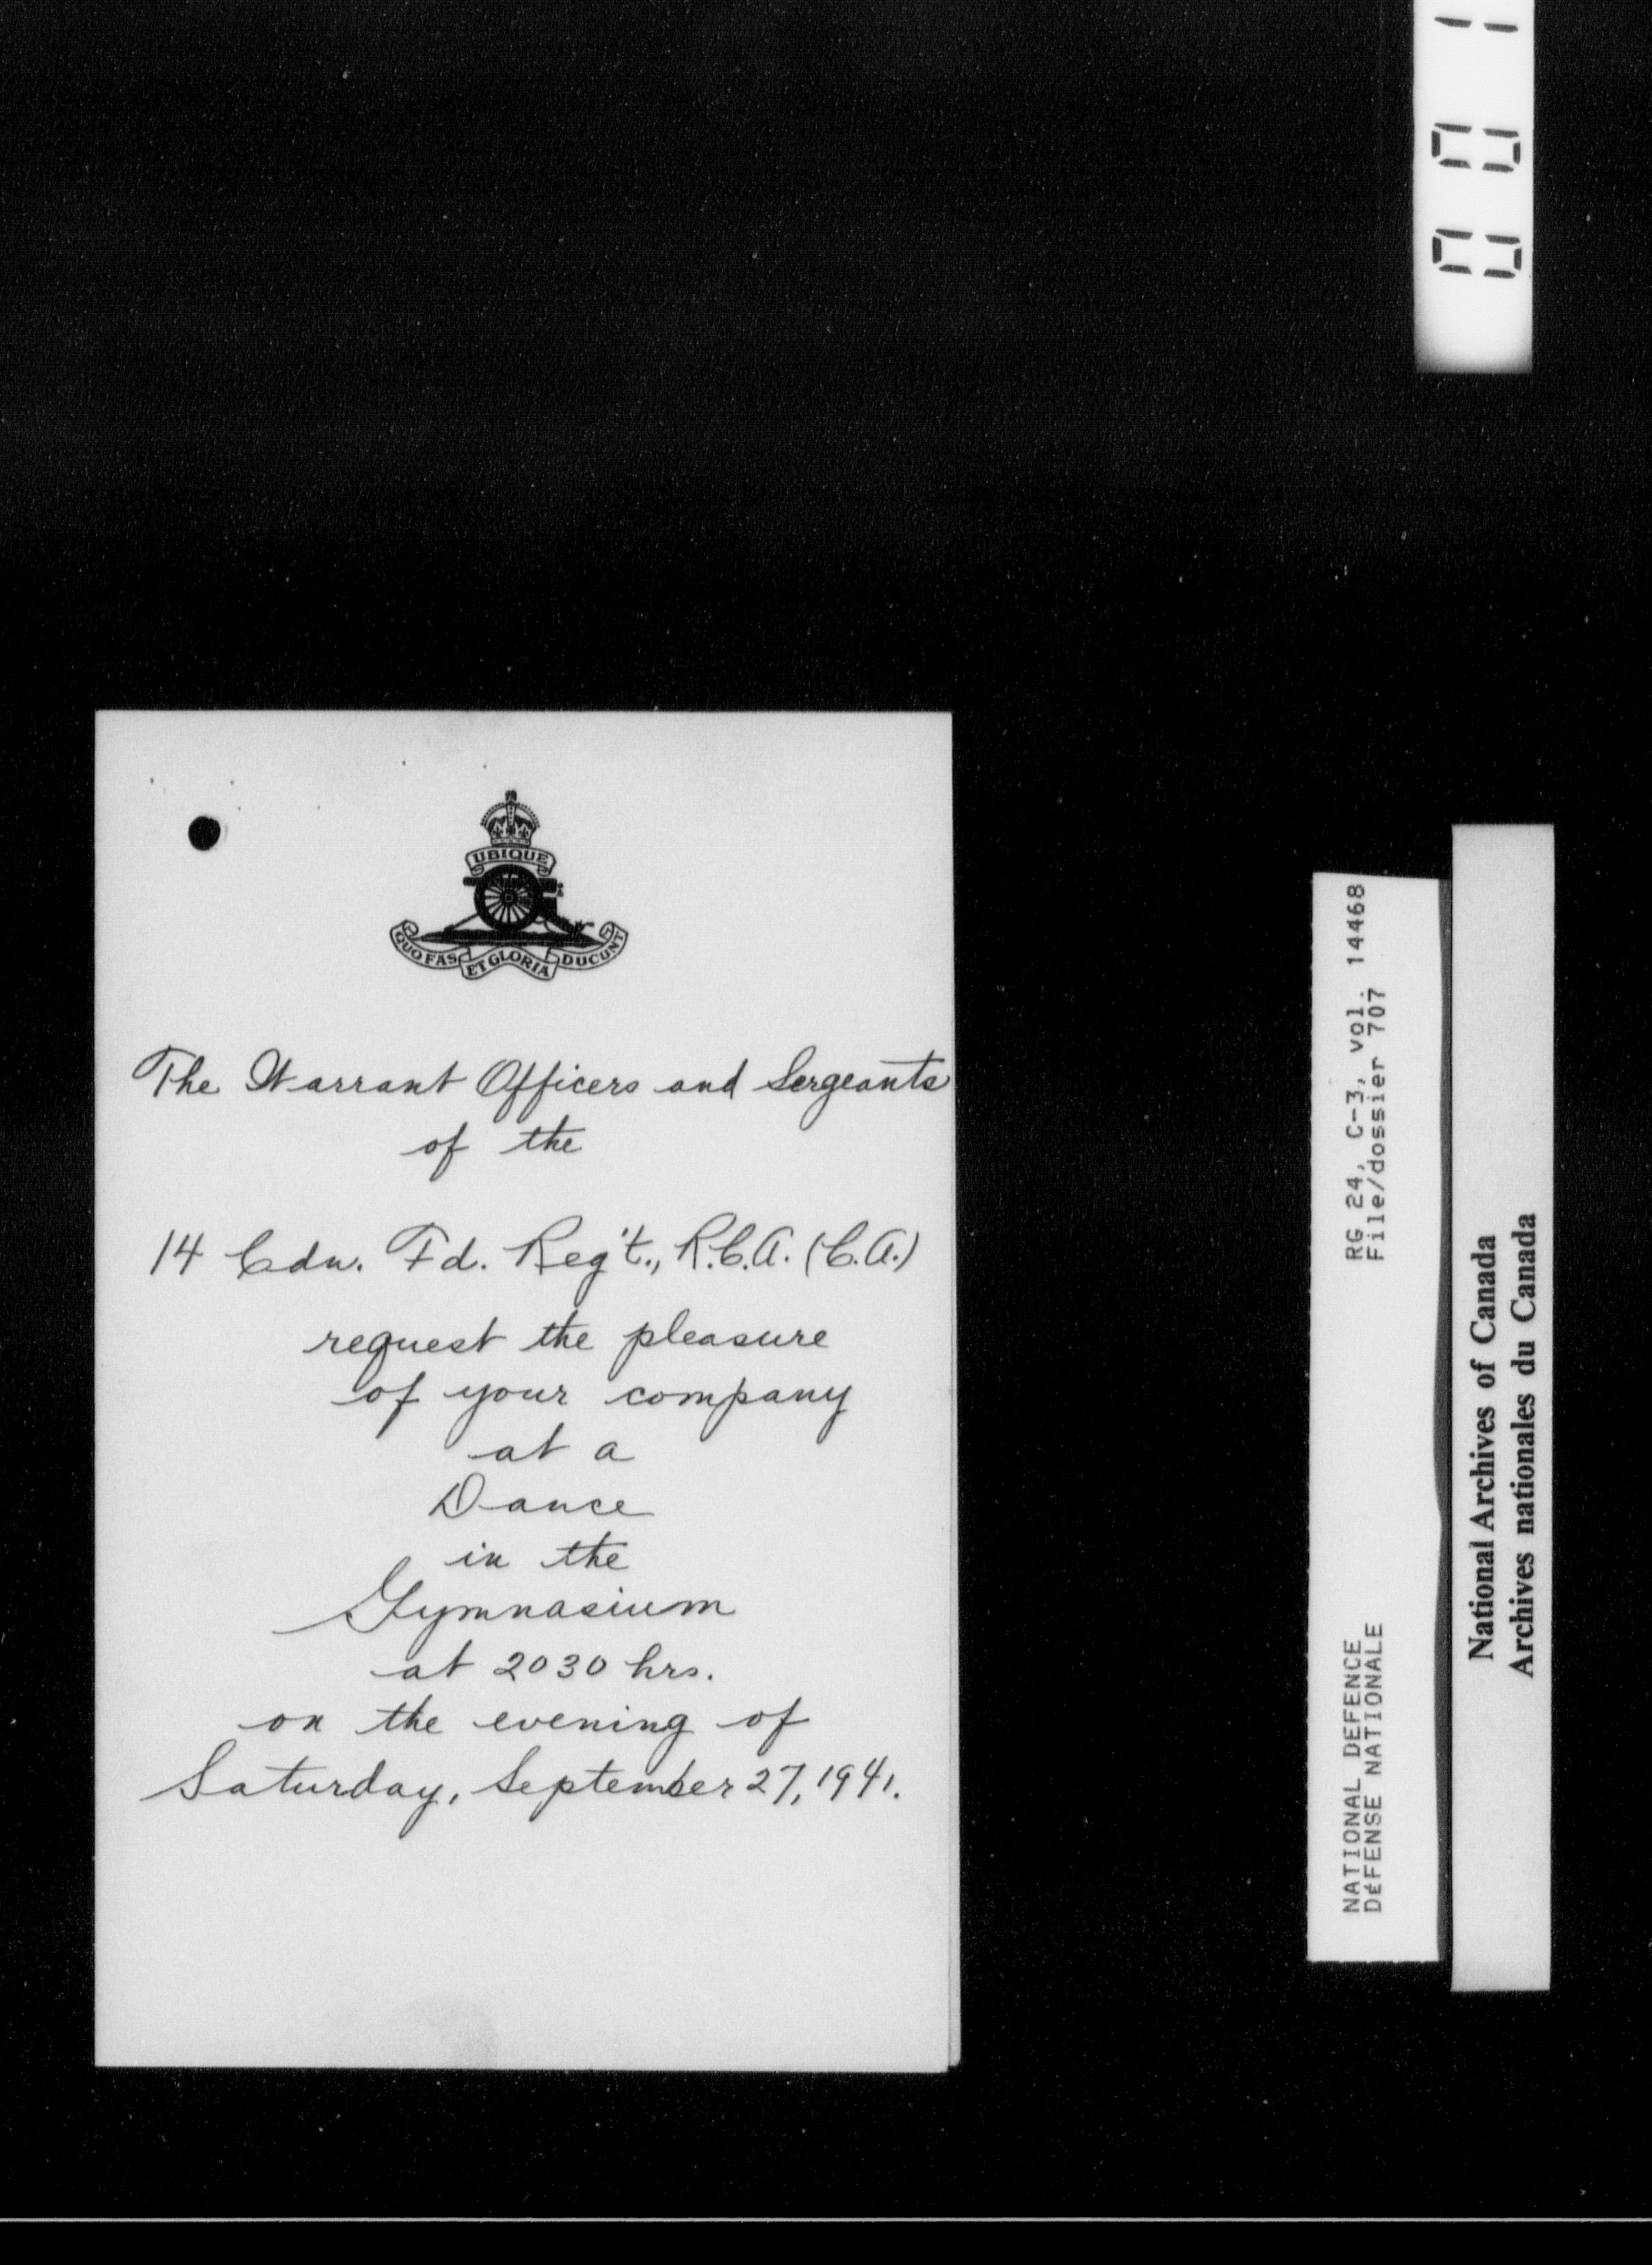 UBIQUE
QUO FAS ET GLORIA DUCUNT
The Warrant Officers and Sergeants
of the
14 Cdn. Fd. Reg't., R.C.A. (C.A.)
request the pleasure
of your company
at a
Dance
in the
Gymnasium
at 2030 hrs.
on the evening of
Saturday, September 27, 1941.
NATIONAL DEFENCE RG 24, C-3, vol. 14468
DéFENSE NATIONALE File/dossier 707
National Archives of Canada
Archives nationales du Canada